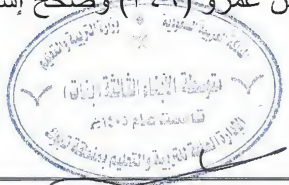 عمرو (١٤٦) وصحح إس
المملكة العربية السعودية
وزارة التربية والتعليم
متوسطة الأبناء الثالثة (بنات)
تأسست عام ١٤٠٥هـ
الإدارة العامة للتربية والتعليم بمنطقة تبوك